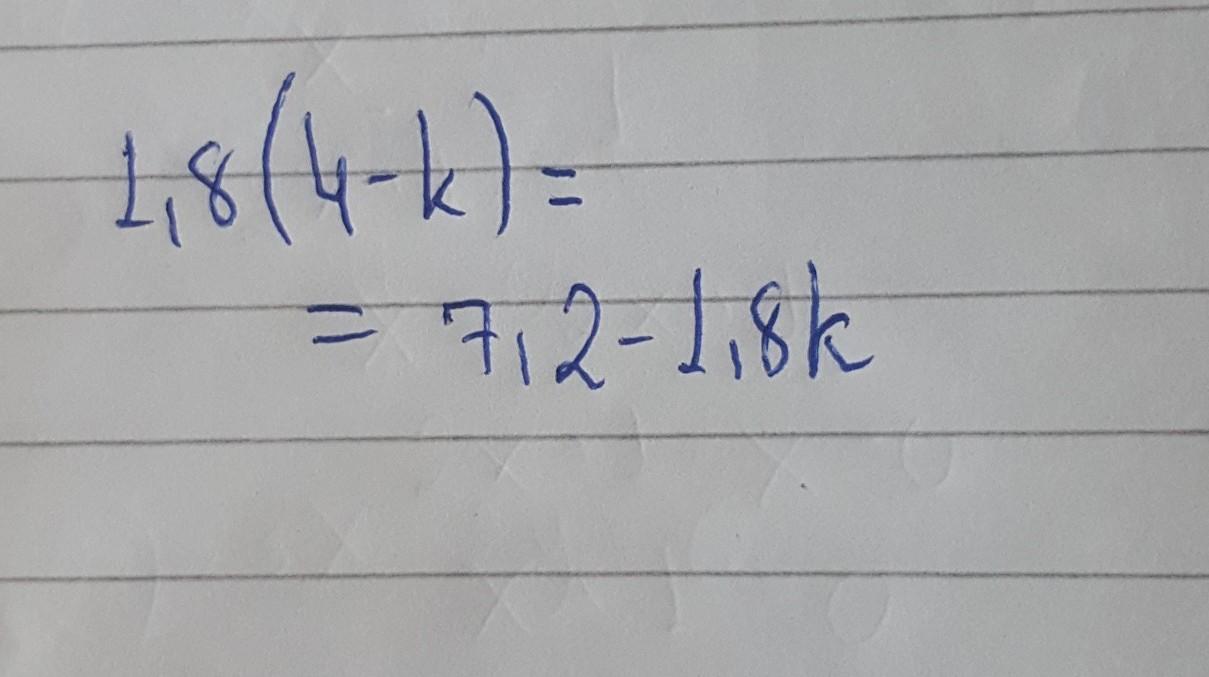 1,8(4-k)=
= 7,2-1,8k